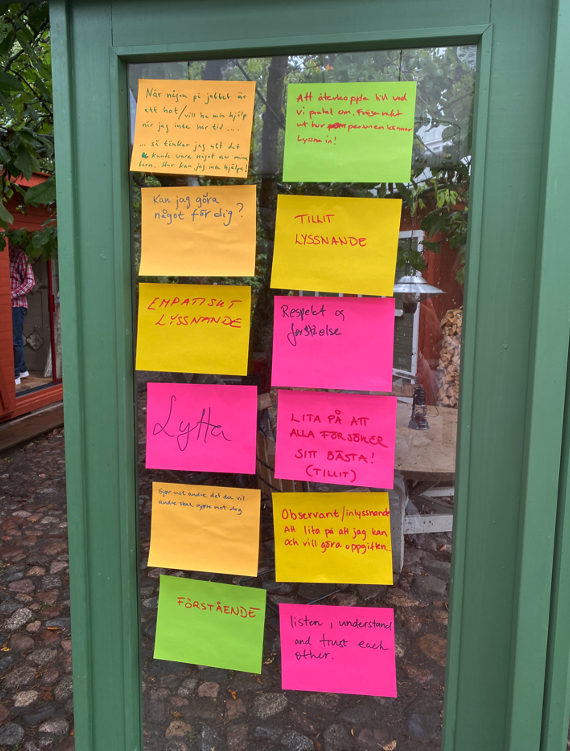 När någon på jobbet är
ett hot/vill ha min hjälp
när jag inte har tid ...
... så tänker jag att det
kunde vara något av mina
barn. Hur kan jag inte hjälpa!
Att återkoppla till vad
vi pratat om. Fråga
ut hur personen känner
Lyssna in!
Kan jag göra
något för dig?
TILLIT
LYSSNANDE
EMPATISKT
LYSSNANDE
Respekt og
forståelse
Lytta
LITA PÅ ATT
ALLA FÖRSÖKER
SITT BÄSTA!
(TILLIT)
Gjør mot andre det du vil
andre skal gjøre mot deg
Observant/inlyssnande
Att lita på att jag kan
och vill göra uppgiften.
FÖRSTÅENDE
listen, understand
and trust each
other.